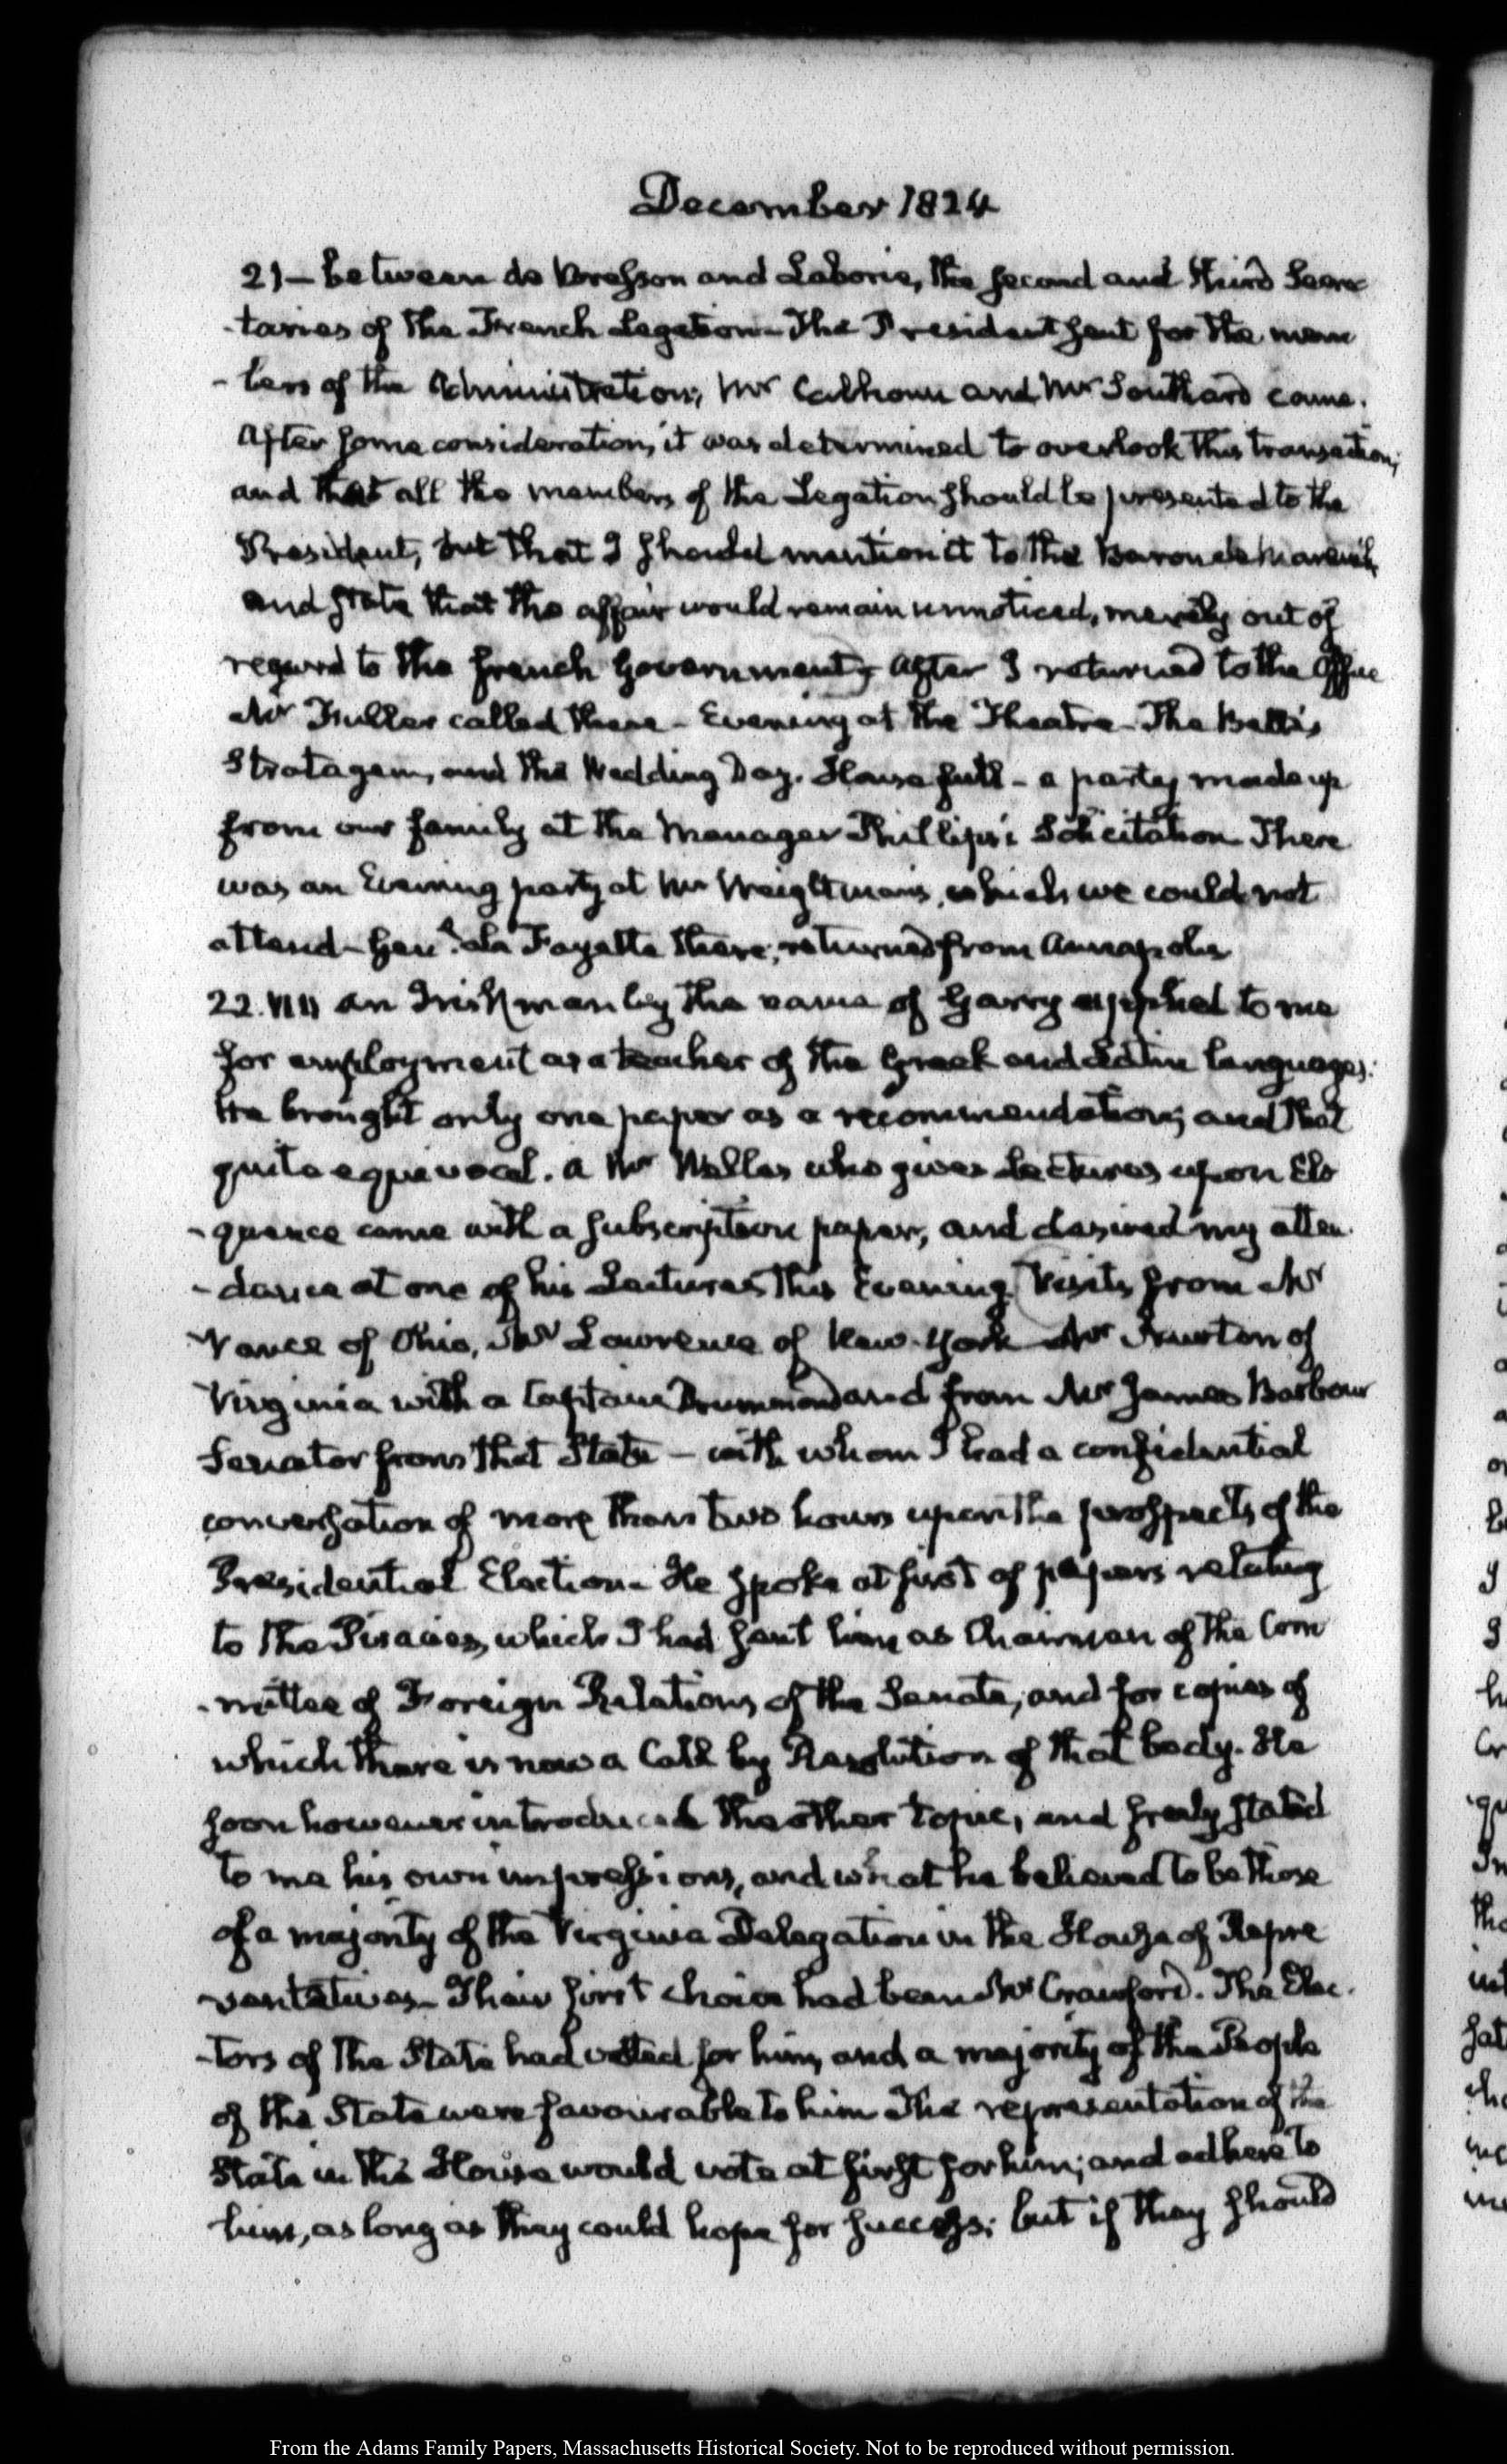 December 1824
21— between de Bresson and Laborie, the second and third Secre
-taries of the French Legation— The President sent for the mem
-bers of the Administration; Mr Calhoun and Mr Southard came.
After some consideration, it was determined to overlook this transaction,
and that all the members of the Legation should be presented to the
President, but that I should mention it to the Baron de Mareuil,
and state that the affair would remain unnoticed, merely out of
regard to the french Government, After I returned to the Office
Mr Fuller called there— Evening at the Theatre— The Belle's
Stratagem, and the Wedding Day. House full— a party made up
from our family at the Manager Phillips's Solicitation There
was an Evening party at Mr Weightman's, which we could not
attend— Genl. la Fayette there; returned from Annapolis
22. VII an Irishman by the name of Garry applied to me
for employment as a teacher of the Greek and Latin languages.
He brought only one paper as a recommendation, and that
quite equivocal. a Mr Weller who gives lectures upon Elo
-quence came with a subscription paper, and desired my atten
-dance at one of his Lectures this Evening Visits from Mr
Vance of Ohio, Mr Lawrence of New-York Mr Newton of
Virginia with a Captain Drummond and from Mr James Barbour
Senator from that State— with whom I had a confidential
conversation of more than two hours upon the prospects of the
Presidential Election— He spoke at first of papers relating
to the Piracies, which I had sent him as Chairman of the Com
-mittee of Foreign Relations of the Senate, and for copies of
which there is now a Call by Resolution of that body. He
soon however introduced the other topic, and freely stated
to me his own impressions, and what he believed to be those
of a majority of the Virginia Delegation in the House of Repre
-sentatives— Their first choice had been Mr Crawford. The Elec.
-tors of the State had voted for him, and a majority of the People
of the State were favourable to him The representation of the
State in the House would vote at first for him; and adhere to
him, as long as they could hope for success; but if they should
From the Adams Family Papers, Massachusetts Historical Society. Not to be reproduced without permission.